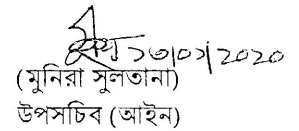 ১৩/০১/2020
(মুনিরা সুলতানা)
উপসচিব (আইন)